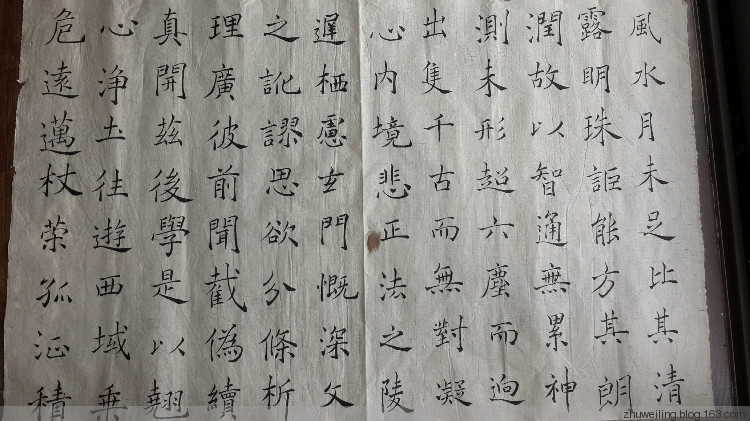 風水月未足比其清
露明珠詎能方其朗
潤故以智通無累神
測未形超六塵而迥
出隻千古而無對凝
心內境悲正法之陵
遲栖慮玄門慨深文
之訛謬思欲分條析
理廣彼前聞截偽續
真開茲後學是以翹
心淨土往遊西域乘
危遠邁杖策孤征積
zhuweiling.blog.163.com